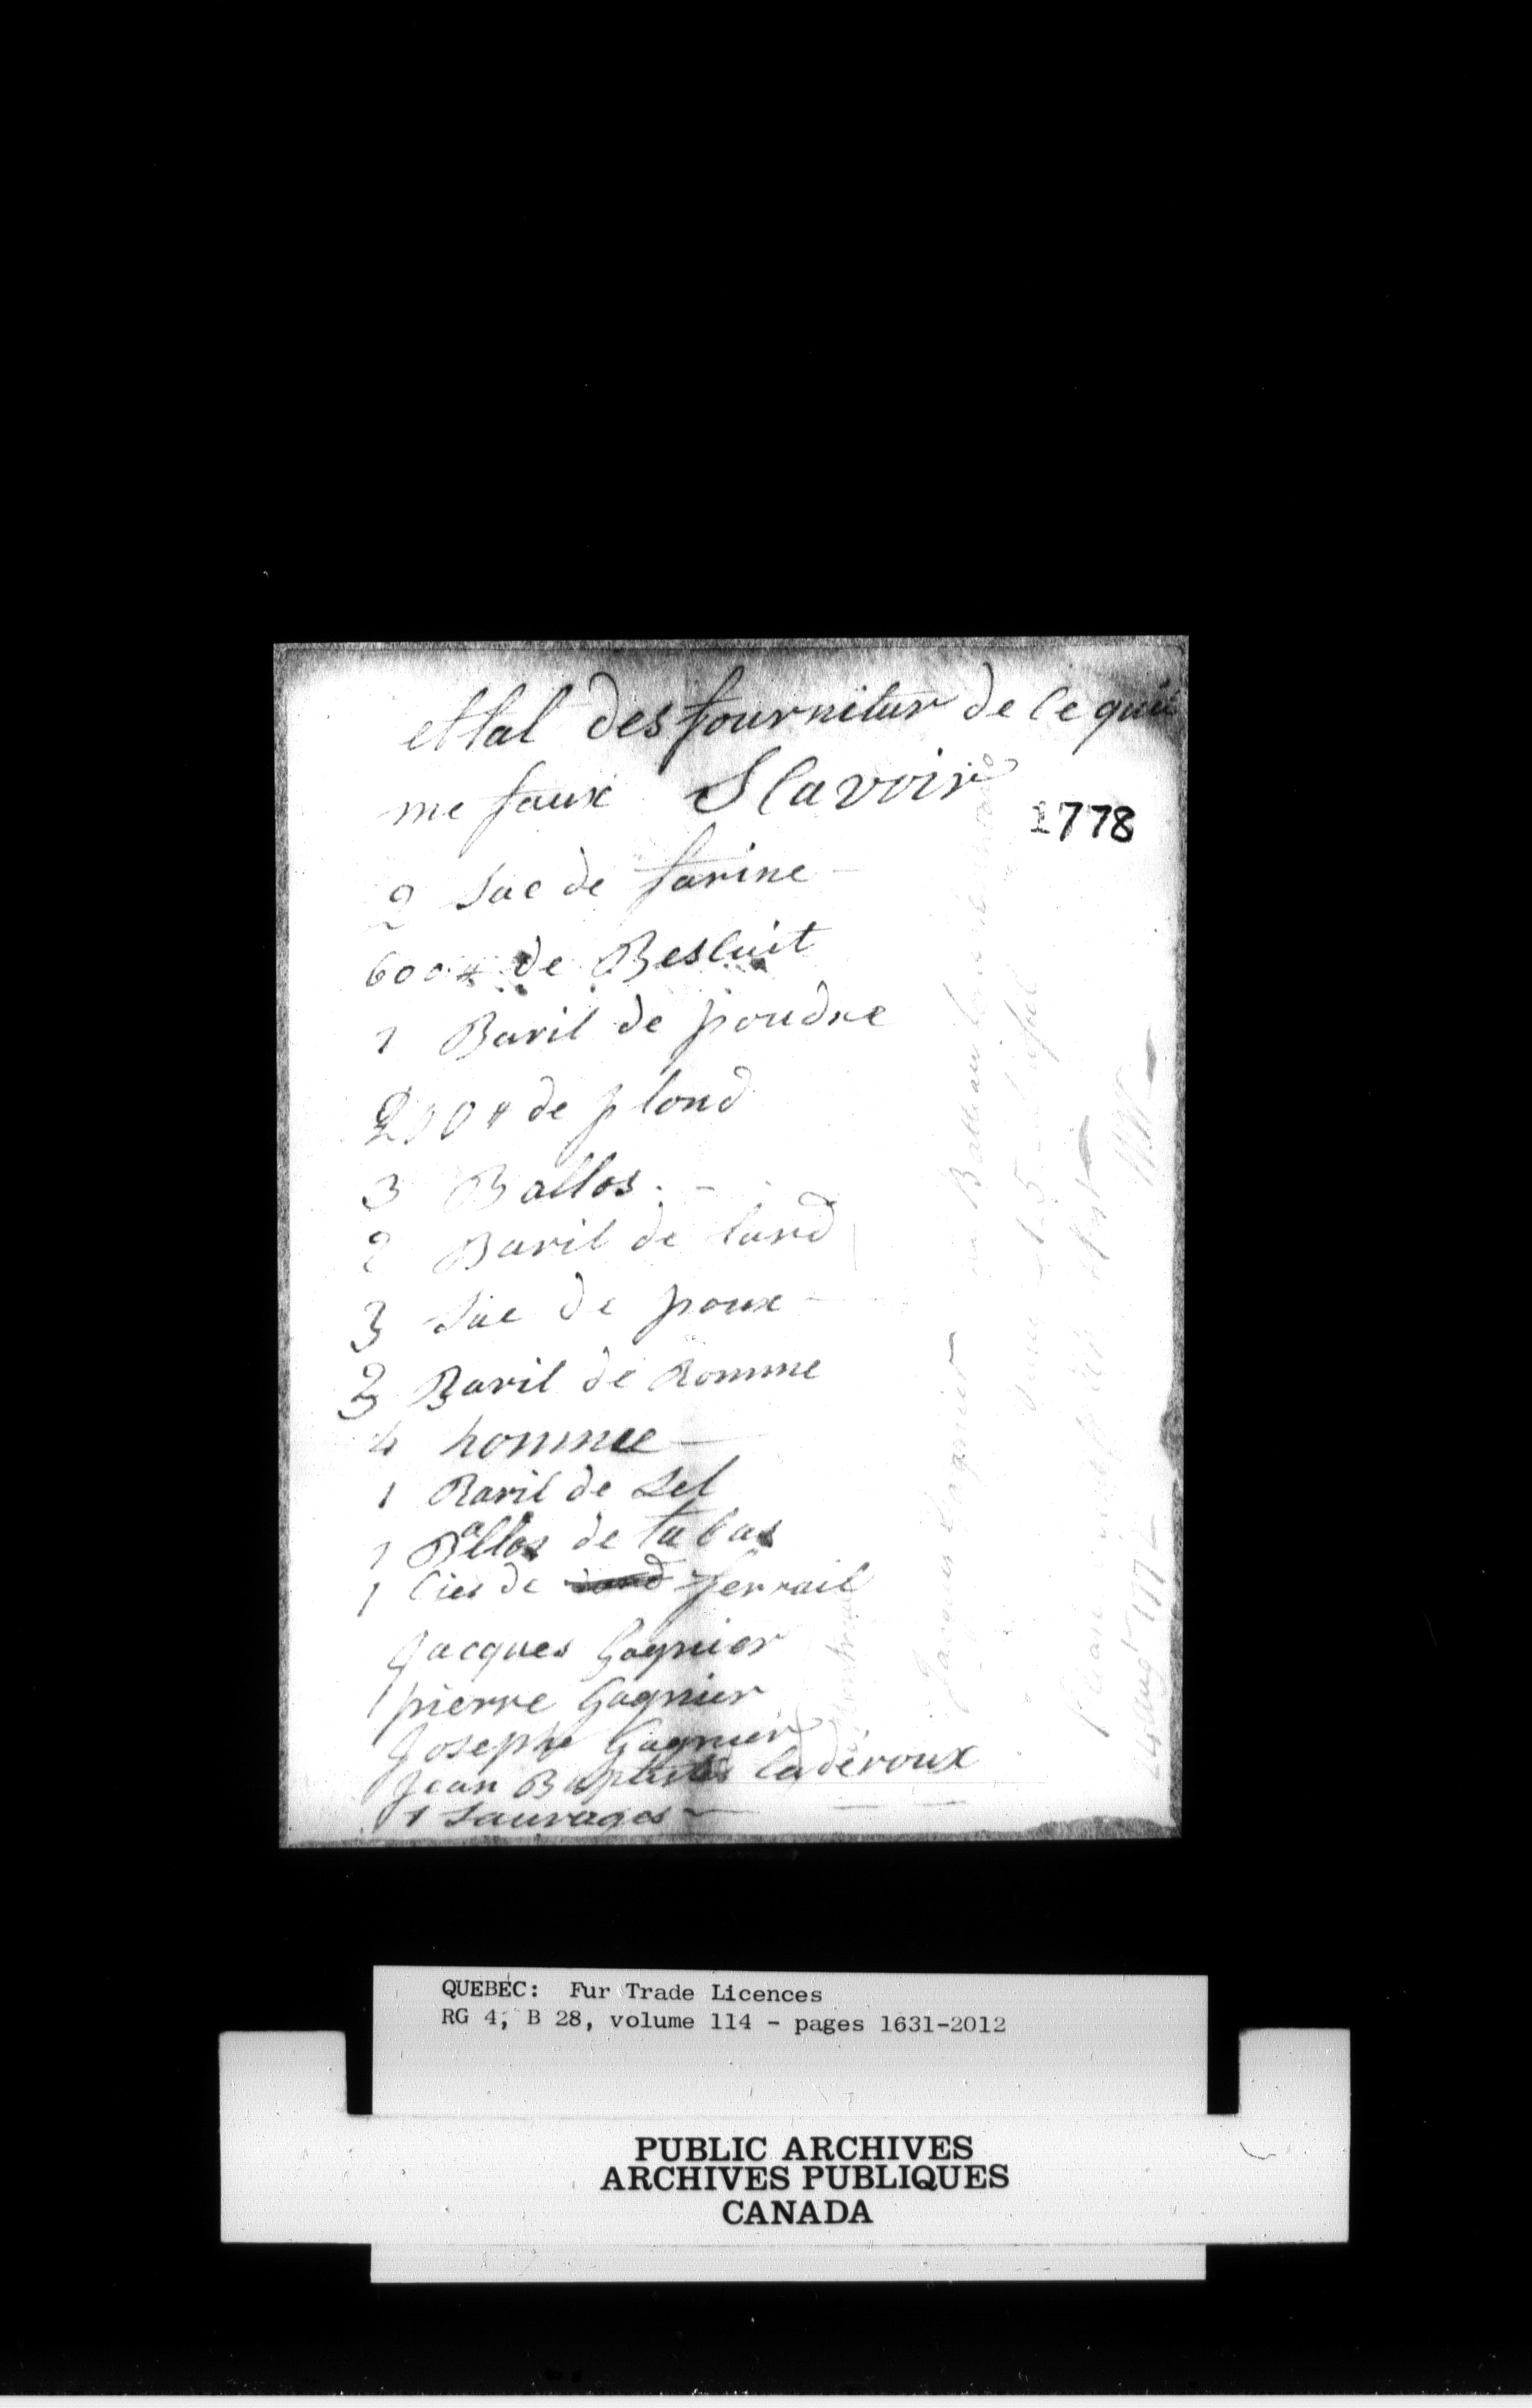 ettat des fournitur de ce quil
me faux Scavoir
1778
2 Sac de farine
600# de Bescuit
1 Baril de poudre
200# de plond
3 Ballos
2 Baril de lard
3 Sac de poux
3 Baril de Romme
4 homme
1 Baril de Sel
1 Ballos de tabas
1 Cies de ferrail
Jacques Gagnier
pierre Gagnier
Josephe Gagnier
Jean Baptiste laderoux
1 Sauvages
Jacques Gagnier
un Batteau
Montreal
24 aug 1772
QUEBEC: Fur Trade Licences
RG 4, B 28, volume 114 - pages 1631-2012
PUBLIC ARCHIVES
ARCHIVES PUBLIQUES
CANADA